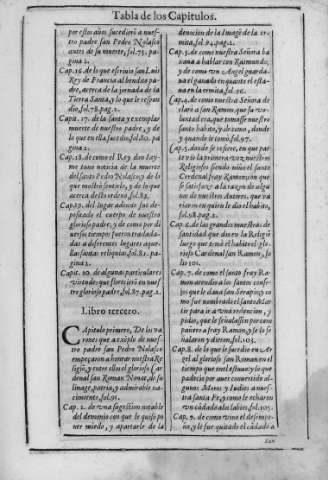 Tabla de los Capitulos.
por estos años, sucedio a nuestro
padre san Pedro Nolasco
antes de su muerte, fol. 75. pa-
gina 2.
Cap. 16. de lo que escrivio san Luis
Rey de Francia al bendito pa-
dre, acerca de la jornada de la
Tierra Santa, y lo que le respon
dio, fol. 78. pag. 2.
Capit. 17. de la santa y exemplar
muerte de nuestro padre, y de
lo que en ella sucedio, fol. 80. pa-
gina 2.
Cap. 18. de como el Rey don Iay-
me tuvo noticia de la muerte
del santo Pedro Nolasco, y de lo
que mostrò sentirlo, y de lo que
acerca desto ordenò, fol. 82.
Cap. 19. del lugar adonde fue de-
positado el cuerpo de nuestro
glorioso padre, y de como por di
versos tiempos fueron traslada-
das a diferentes lugares aque-
llas santas reliquias, fol. 85. pa-
gina 2.
Capit. 20. de algunas particulares
virtudes que florecieron en nues-
tro glorioso padre, fol. 87. pag. 2.
Libro tercero.
Capitulo primero, De los va
rones que a exẽplo de nuestro
padre san Pedro Nolasco
empeçaron a honrar nuestra Re-
ligiõ, y entre ellos el glorioso Car
denal san Ramon Nonat, de su
linage, patria, y admirable na-
cimiento, fol. 91.
Cap. 2. de una sugestion notable
del demonio con que le quiso po
ner miedo, y apartarle de la
devocion de la Imagẽ de la er-
mita, fol. 94. pag. 2.
Cap. 3. de como nuestra Señora ba
xava a hablar con Raimundo,
y de como un Angel guarda-
va el ganado en quanto el esta-
va en la ermita, fol. 96.
Cap. 4. de como nuestra Señora de
clarò a san Ramon que su vo-
luntad era, que tomasse nuestro
santo habito, y de como, donde
y quando le tomò, fol. 97.
Cap. 5. donde se refiere, en que par
te vio la primera vez nuestros
Religiosos siendo niño el santo
Cardenal fray Ramon, con que
se satisfaze a la razon de algu-
nos de nuestros autores, que va
rieron en quien le dio el habito,
fol. 98. pag. 2.
Cap. 6. de las grandes muestras de
santidad que dio en la Religiõ
luego que tomò el habito el glo-
rioso Cardenal san Ramon, fo
lio 101.
Cap. 7. de como el santo fray Ra-
mon atendio a los santos consejos
que le dava san Serapio, y co
mo fue nombrado el santo Martir
para ir a una redencion, y
pidio, que le señalassen por com
pañero a fray Ramon, y se le se
ñalaron y dieron, fol. 103.
Cap. 8. de lo que le sucedio en Ar-
gel al glorioso san Ramon en el
tiempo que en el estuvo, y lo que
padecio por aver convertido al-
gunos Moros y Iudios a nues-
tra santa Fe, y como le echaron
un cãdado a los labios, fol. 105.
Cap. 9. de como vino el desempe-
ño, y le fue quitado el cãdado a